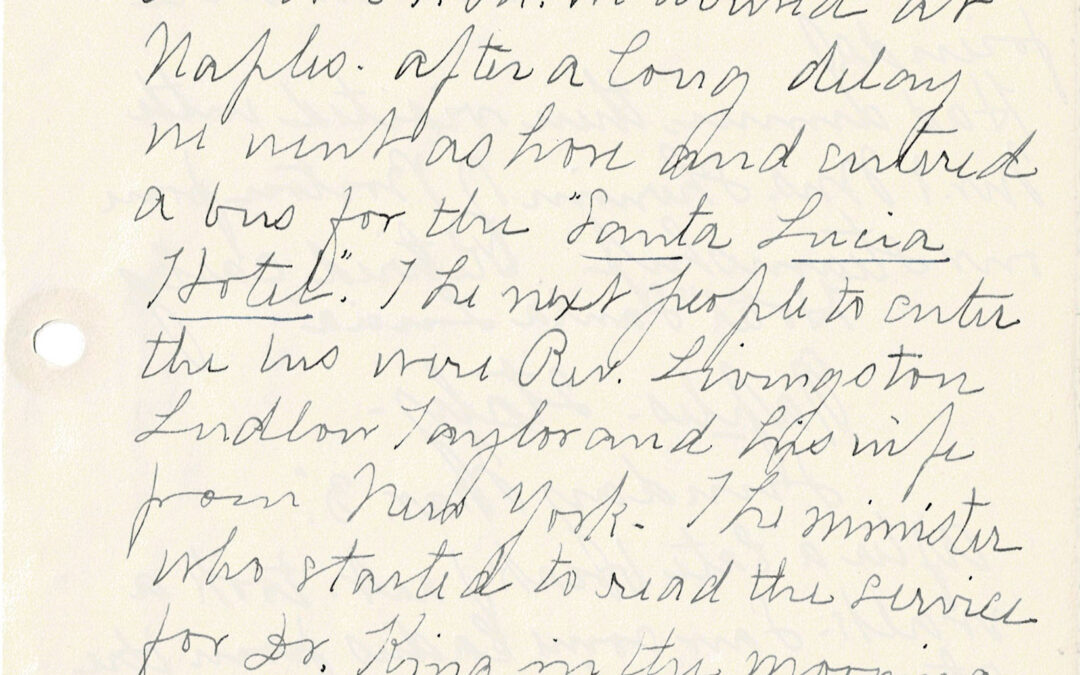 arrived at
Naples. after a long delay
we went ashore and entered
a bus for the "Santa Lucia
Hotel". The next people to enter
the bus were Rev. Livingston
Ludlow Taylor and his wife
from New York. The minister
who started to read the service
for Dr. King in the morning